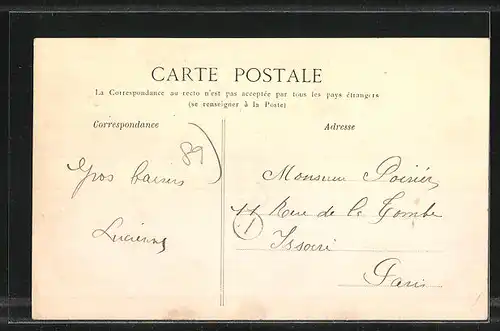 CARTE POSTALE
La Correspondance au recto n'est pas acceptée par tous les pays étrangers
(se renseigner à la Poste)
Correspondance
Adresse
89
Gros baisers
Lucienne
Monsieur Poirier
11 Rue de la Tombe
1
Issoire
Paris